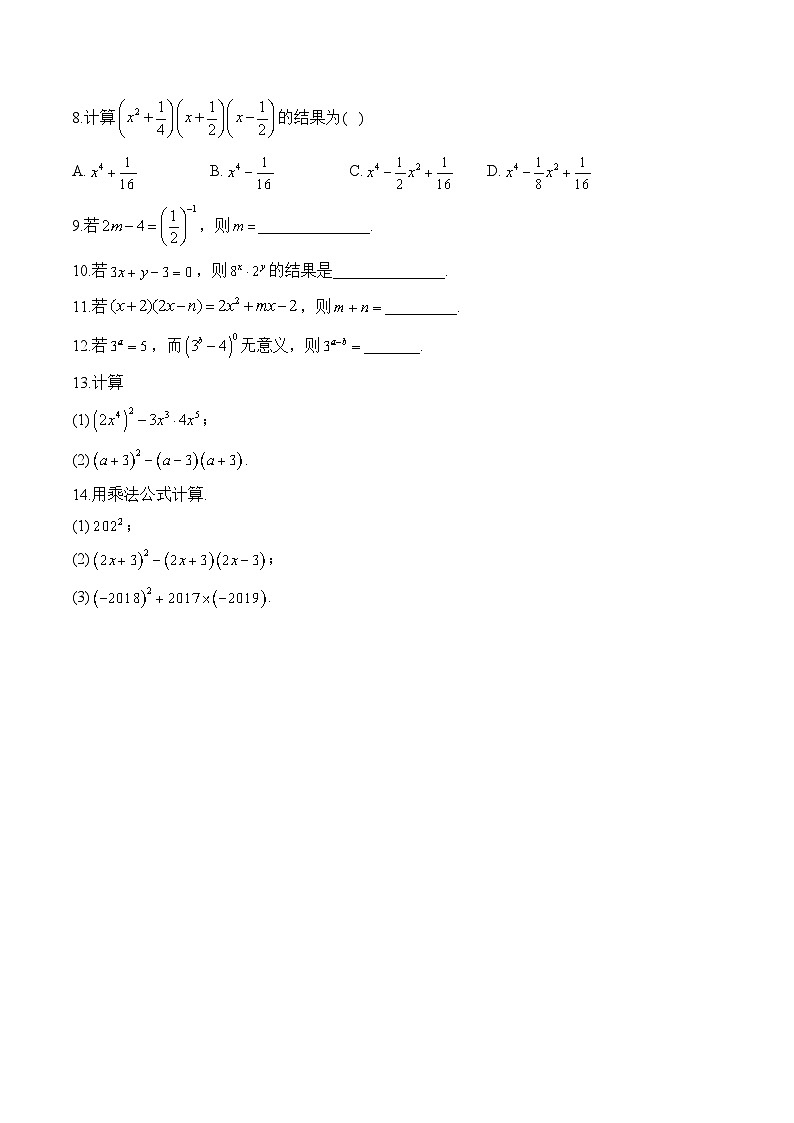 8.计算(x²+1/4)(x+1/2)(x−1/2)的结果为( )
A. x⁴+1/16 B. x⁴−1/16 C. x⁴−1/2x²+1/16 D. x⁴−1/8x²+1/16
9.若2m−4=(1/2)⁻¹，则m=______________.
10.若3x+y−3=0，则8ˣ·2ʸ的结果是______________.
11.若(x+2)(2x−n)=2x²+mx−2，则m+n=_________.
12.若3ᵃ=5，而(3ᵇ−4)⁰无意义，则3ᵃ⁻ᵇ=_______.
13.计算
(1)(2x⁴)²−3x³·4x⁵；
(2)(a+3)²−(a−3)(a+3).
14.用乘法公式计算.
(1)202²；
(2)(2x+3)²−(2x+3)(2x−3)；
(3)(−2018)²+2017×(−2019).